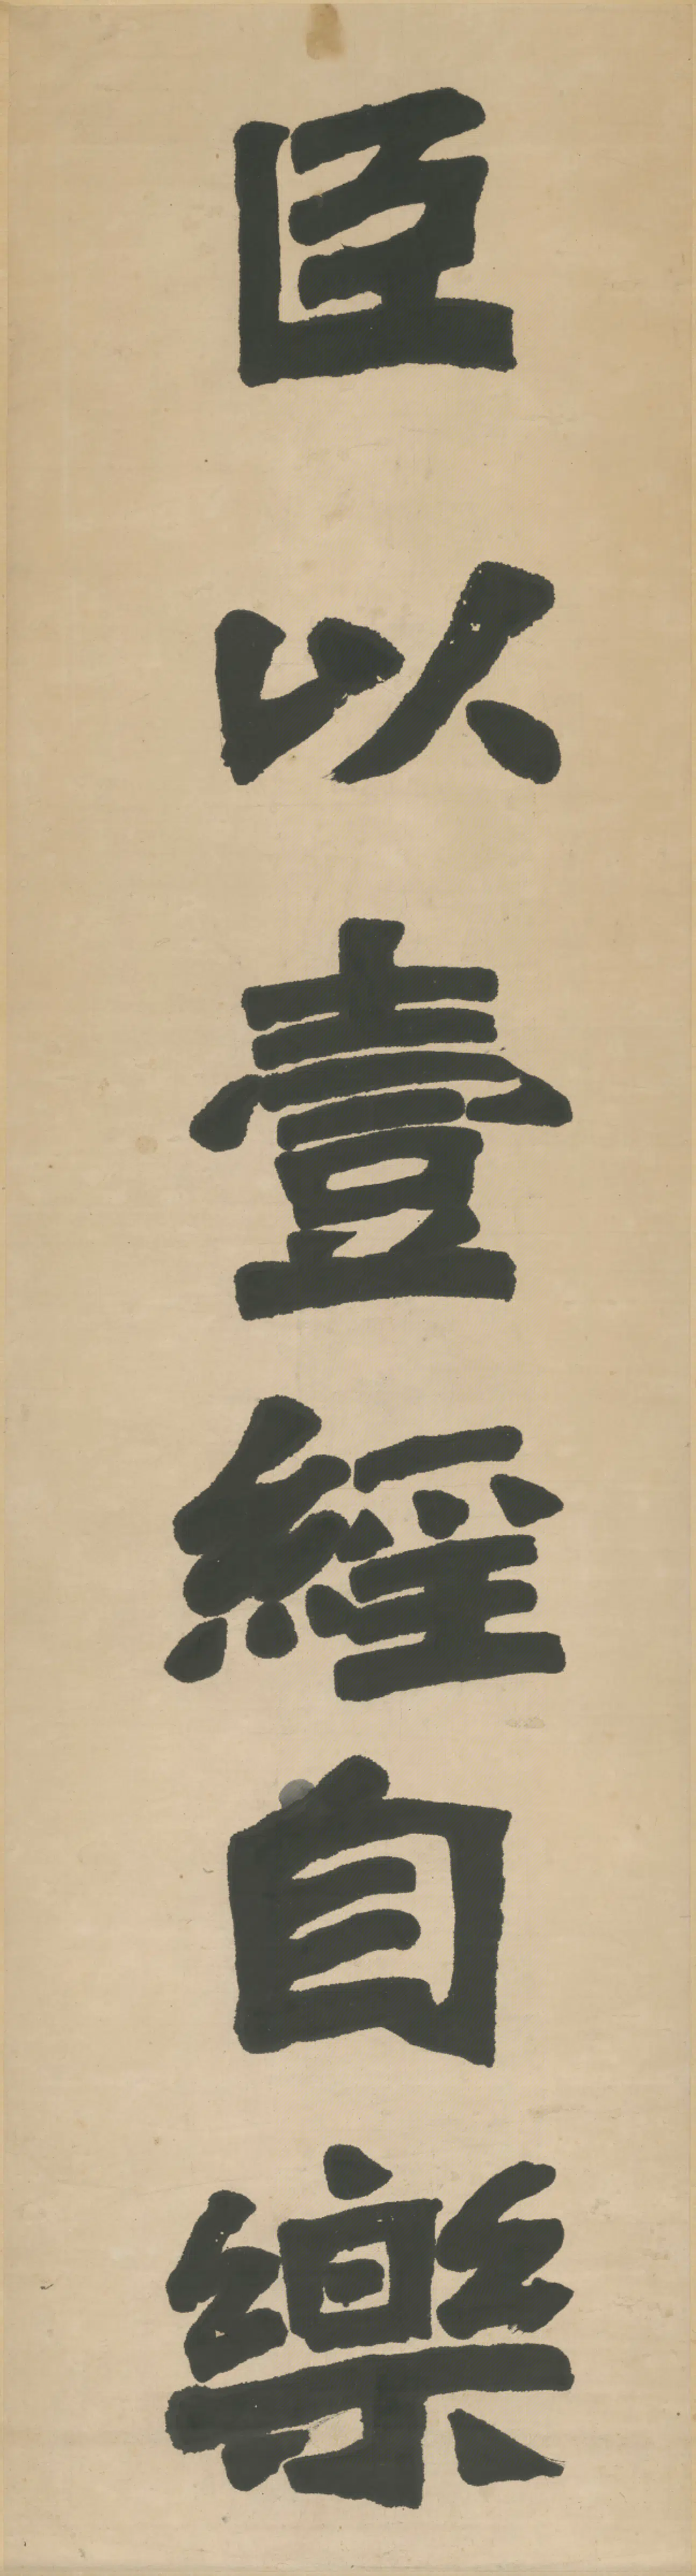 臣以壹經自樂